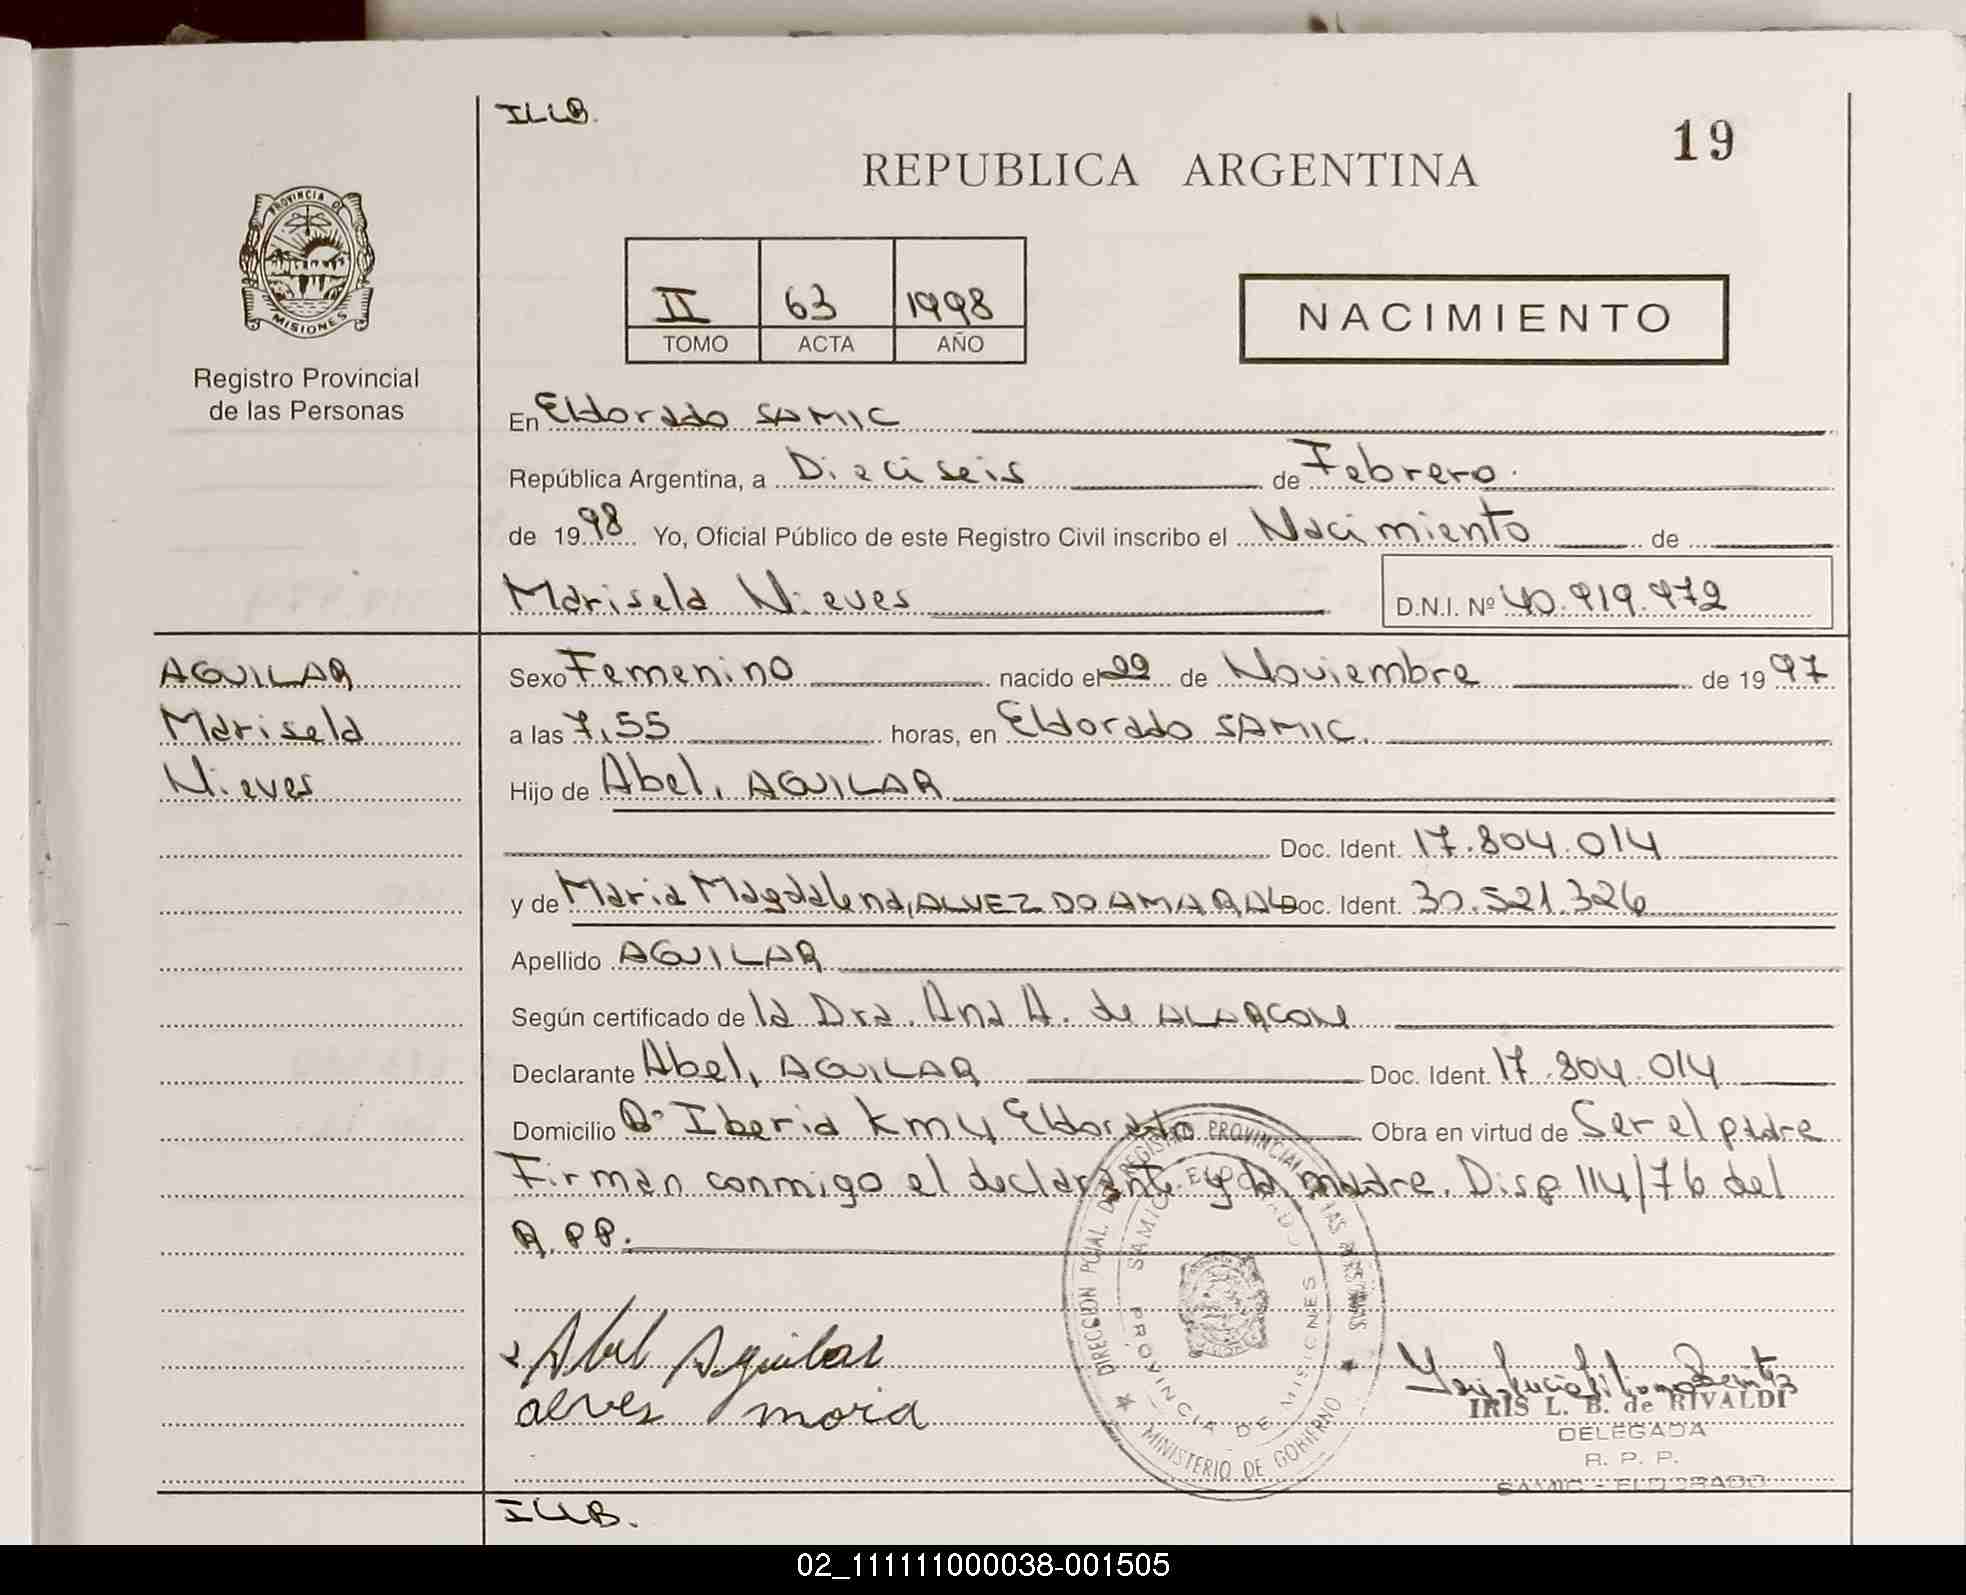 ILLB.
19
REPUBLICA ARGENTINA
PROVINCIA DE
MISIONES
Registro Provincial
de las Personas
II 63 1998
TOMO ACTA AÑO
NACIMIENTO
En Eldorado SAMIC
República Argentina, a Dieciseis de Febrero.
de 1998 Yo, Oficial Público de este Registro Civil inscribo el Nacimiento de
Marisela Nieves D.N.I. Nº 40.919.972
AGUILAR
Marisela
Nieves
Sexo Femenino nacido el 22 de Noviembre de 1997
a las 7,55 horas, en Eldorado SAMIC.
Hijo de Abel, AGUILAR
Doc. Ident. 17.804.014
y de Maria Magdalena, ALVEZ DO AMARAL Doc. Ident. 30.521.326
Apellido AGUILAR
Según certificado de la Dra. Ana A. de ALARCON
Declarante Abel, AGUILAR Doc. Ident. 17.804.014
Domicilio Bº Iberia km 4 Eldorado Obra en virtud de Ser el padre
Firman conmigo el declarante y la madre. Disp 114/76 del
R.PP.
DIRECCION PCIAL. DEL REGISTRO PROVINCIAL DE LAS PERSONAS
SAMIC ELDORADO
PROVINCIA DE MISIONES
MINISTERIO DE GOBIERNO
Abel Aguilar
alves moria
IRIS L. B. de RIVALDI
DELEGADA
R. P. P.
SAMIC - ELDORADO
ILLB.
02_111111000038-001505